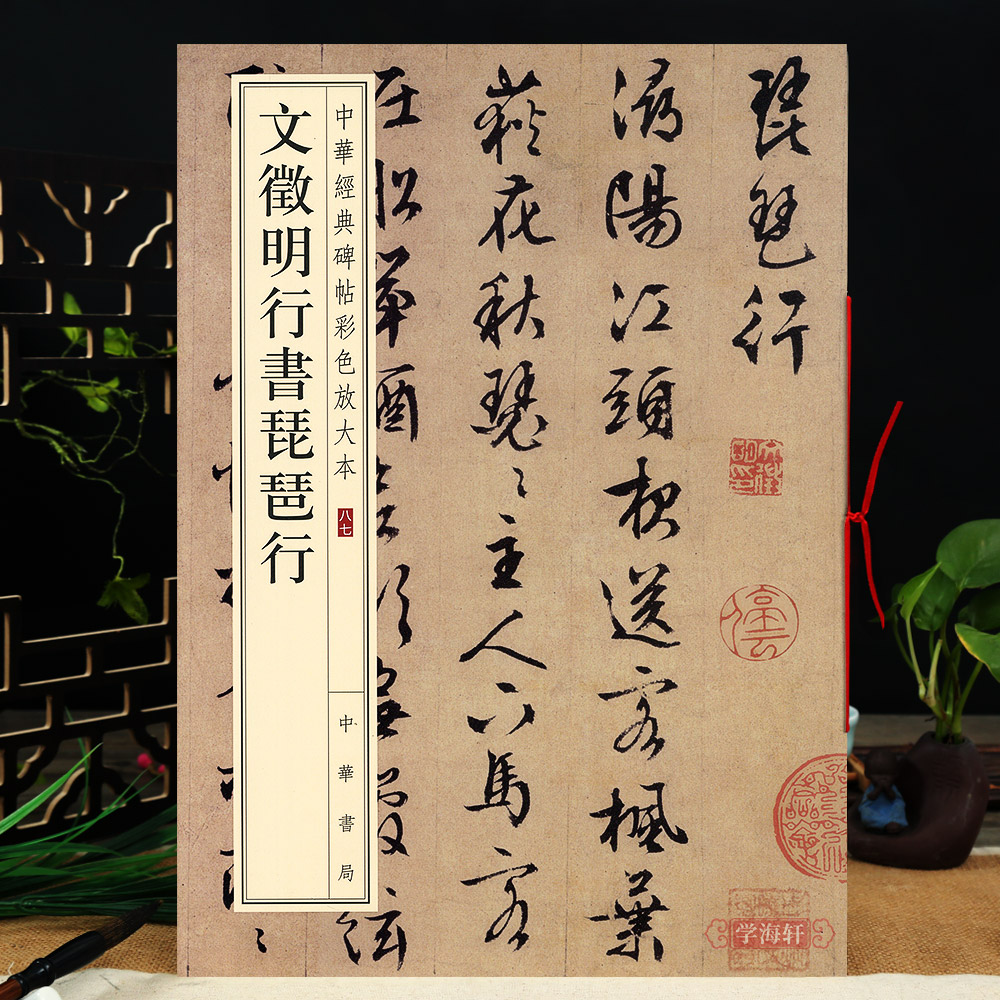 琵琶行
文徵明印
停雲
潯陽江頭夜送客楓葉
荻花秋瑟〻主人下馬客
在船舉酒欲飲無管絃
中華經典碑帖彩色放大本
八七
中華書局
文徵明行書琵琶行
学海轩